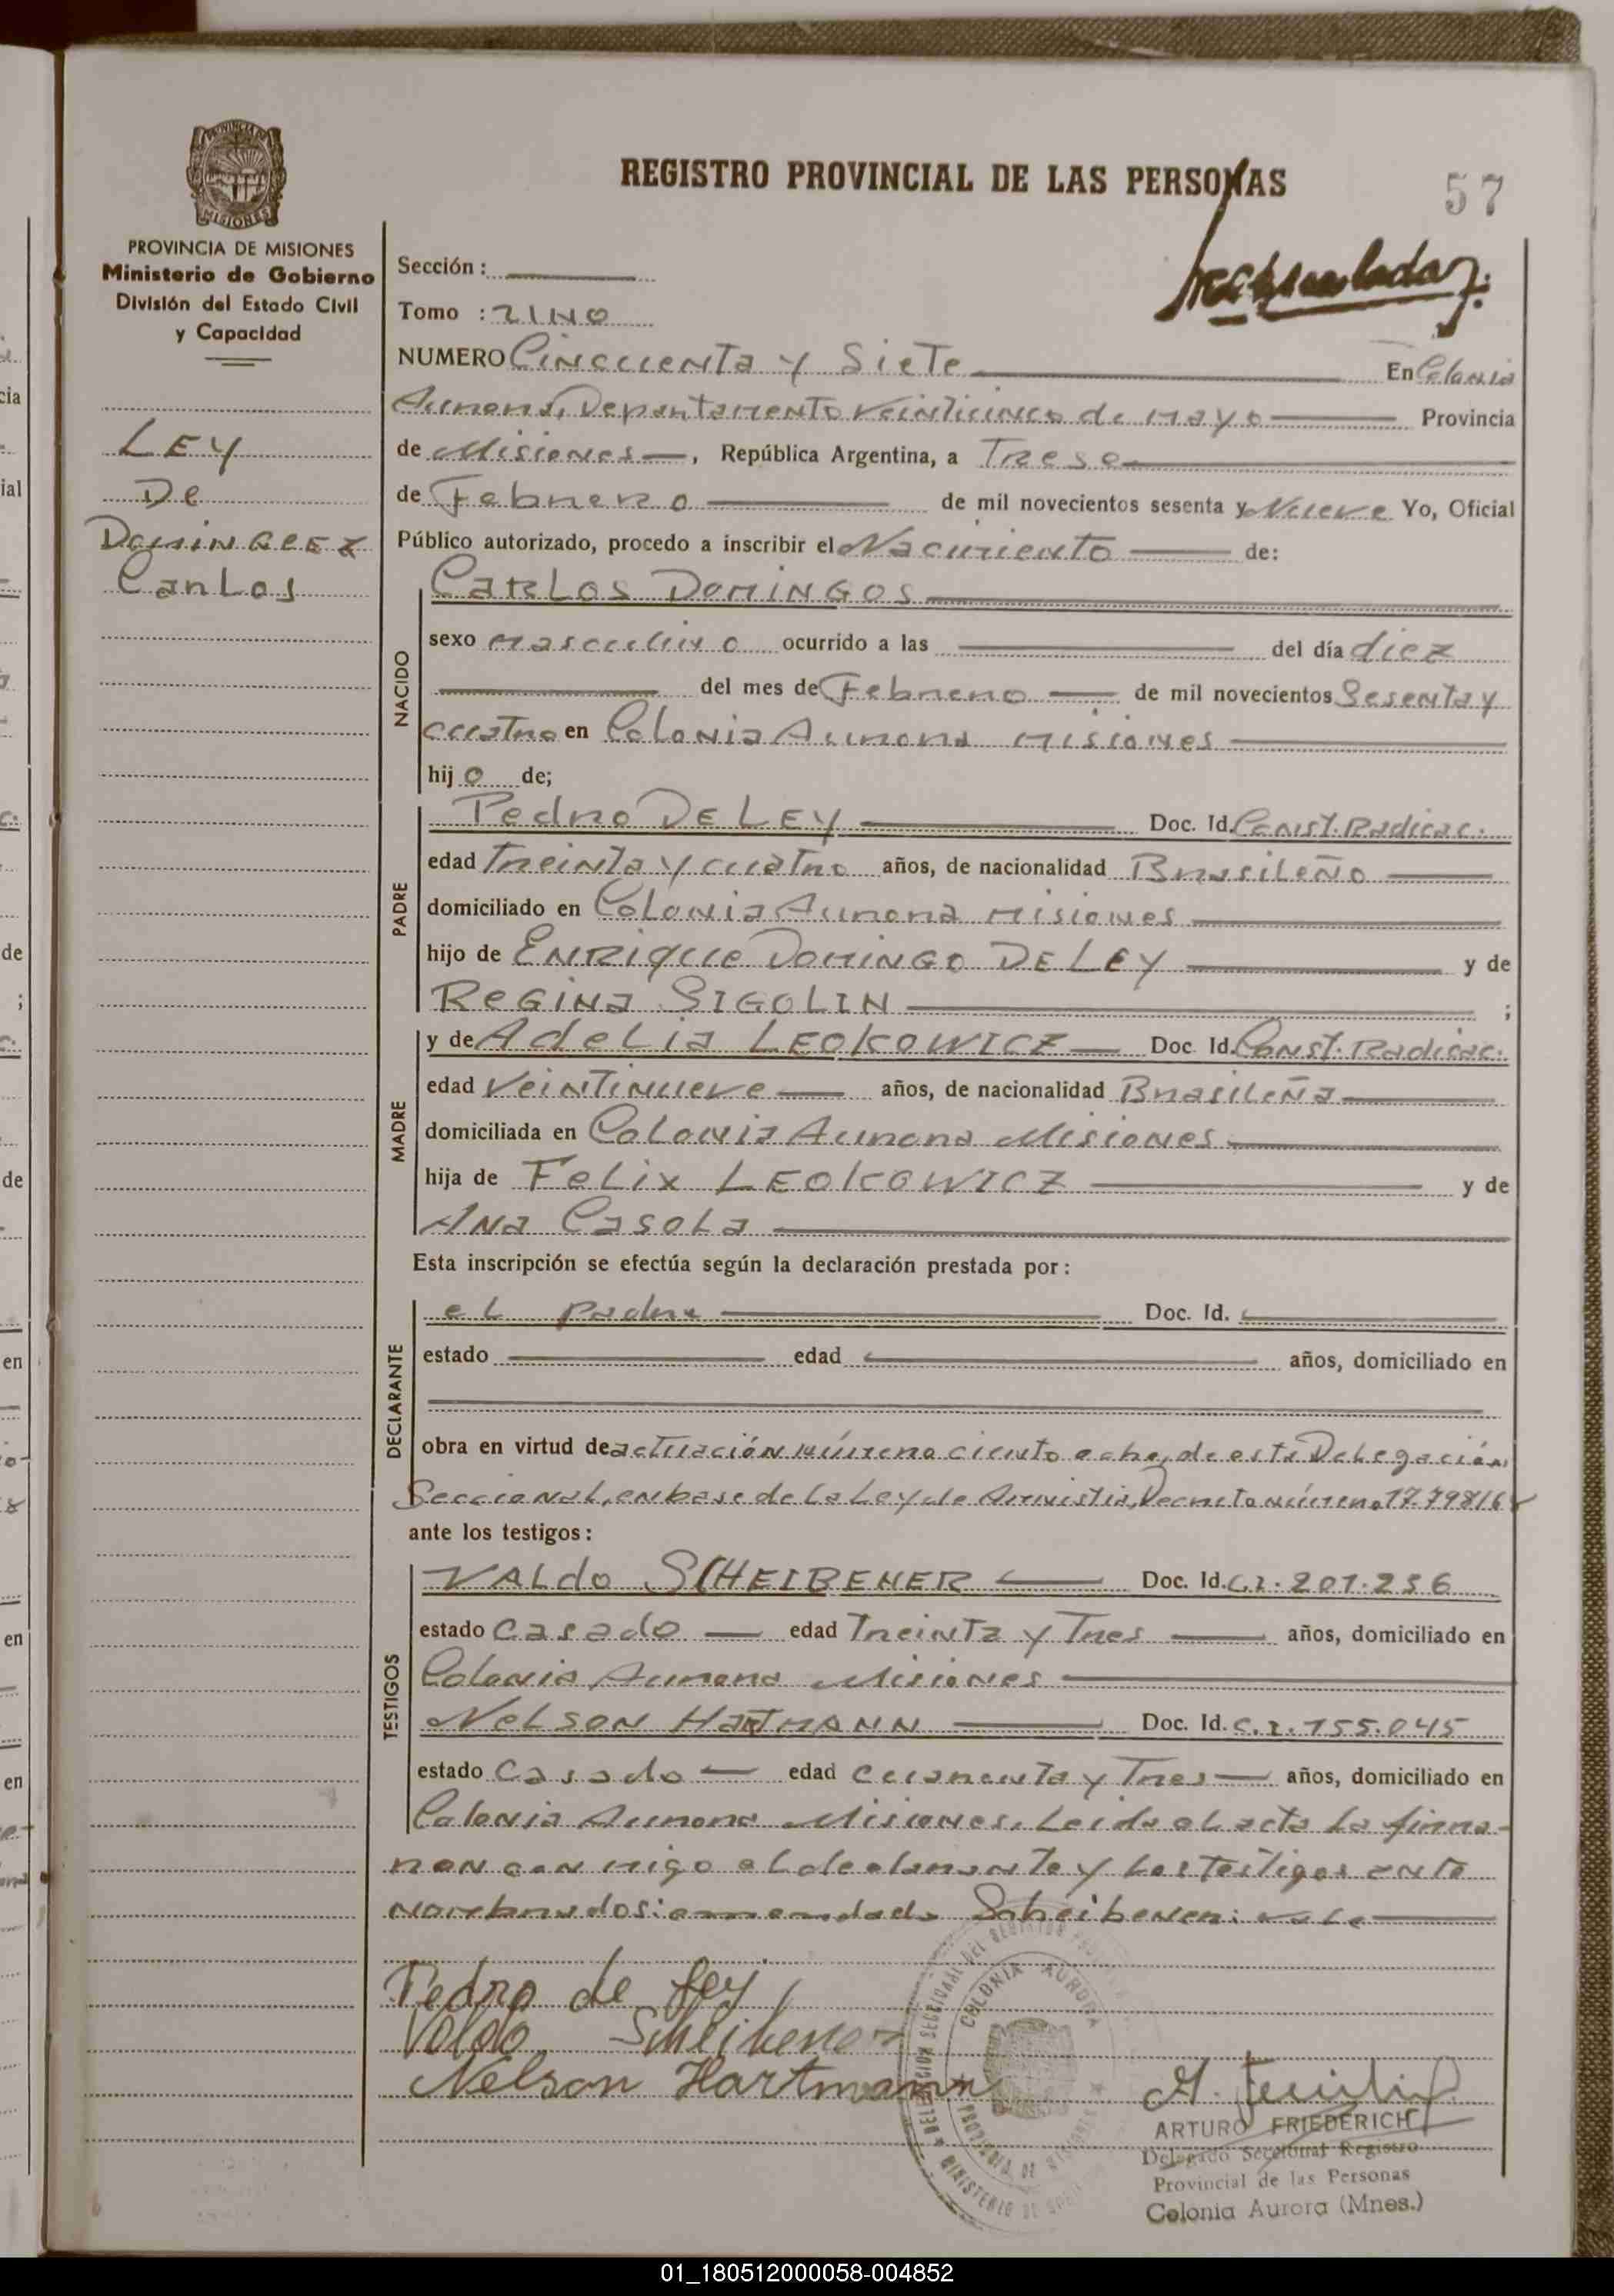 REGISTRO PROVINCIAL DE LAS PERSONAS
57
PROVINCIA DE MISIONES
Ministerio de Gobierno
División del Estado Civil
y Capacidad
LEY
De
Carlos
Sección :
Tomo : UNO
NUMERO Cincuenta y Siete En Colonia
Aurora, Departamento Veinticinco de Mayo Provincia
de Misiones, República Argentina, a Trese
de Febrero de mil novecientos sesenta y Nueve Yo, Oficial
Público autorizado, procedo a inscribir el Nacimiento de:
NACIDO
CARLOS DOMINGOS
sexo masculino ocurrido a las del día diez
del mes de Febrero de mil novecientos Sesenta y
cuatro en Colonia Aurora Misiones
hijo de;
PADRE
Pedro DE LEY Doc. Id. Const. Radicac.
edad Treinta y cuatro años, de nacionalidad Brasileño
domiciliado en Colonia Aurora Misiones
hijo de ENRIQUE DOMINGO DE LEY y de
REGINA SIGOLIN ;
MADRE
y de Adelia LEOKOWICZ Doc. Id. Const. Radicac.
edad Veintinueve años, de nacionalidad Brasileña
domiciliada en Colonia Aurora Misiones
hija de Felix LEOKOWICZ y de
Ana Casola
Esta inscripción se efectúa según la declaración prestada por:
DECLARANTE
el padre Doc. Id.
estado edad años, domiciliado en
obra en virtud de actuación número ciento ocho, de esta Delegación
Seccional, en base de la Ley de Amnistia, Decreto número 17.798/68
ante los testigos:
TESTIGOS
VALdo SCHEIBENER Doc. Id. C.I. 201.256
estado Casado edad Treinta y Tres años, domiciliado en
Colonia Aurora Misiones
NELSON HARTMANN Doc. Id. C.I. 155.045
estado Casado edad Cuarenta y Tres años, domiciliado en
Colonia Aurora Misiones. Leida el acta La firma-
ron con migo el declarante y los testigos ante
nombrados: enmendado Scheibener: vale
Pedro de Ley
Valdo Scheibener
Nelson Hartmann
COLONIA AURORA
ARTURO FRIEDERICH
Delegado Seccional Registro
Provincial de las Personas
Colonia Aurora (Mnes.)
01_180512000058-004852